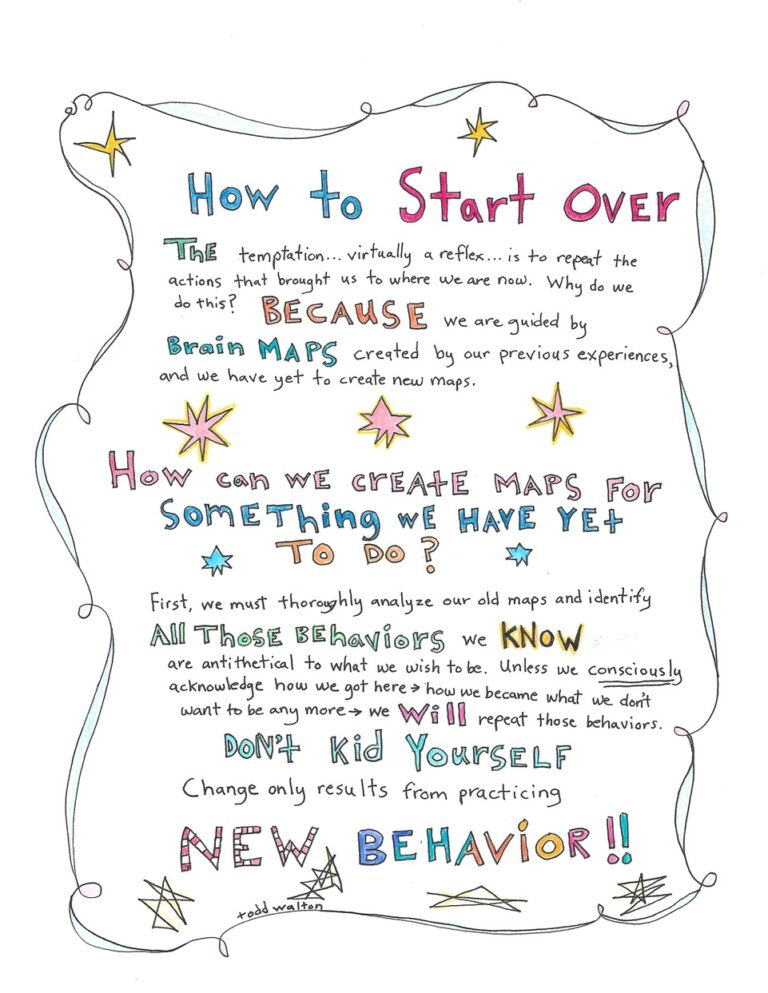 How to Start Over
The temptation... virtually a reflex... is to repeat the
actions that brought us to where we are now. Why do we
do this? BECAUSE we are guided by
Brain MAPS created by our previous experiences,
and we have yet to create new maps.
How can we create maps for
SOMEThing we HAVE YEt
TO DO?
First, we must thoroughly analyze our old maps and identify
All Those Behaviors we KNOW
are antithetical to what we wish to be. Unless we consciously
acknowledge how we got here → how we became what we don't
want to be any more → we Will repeat those behaviors.
DON't Kid YourSELF
Change only results from practicing
NEW BEHAVIOR!!
todd walton